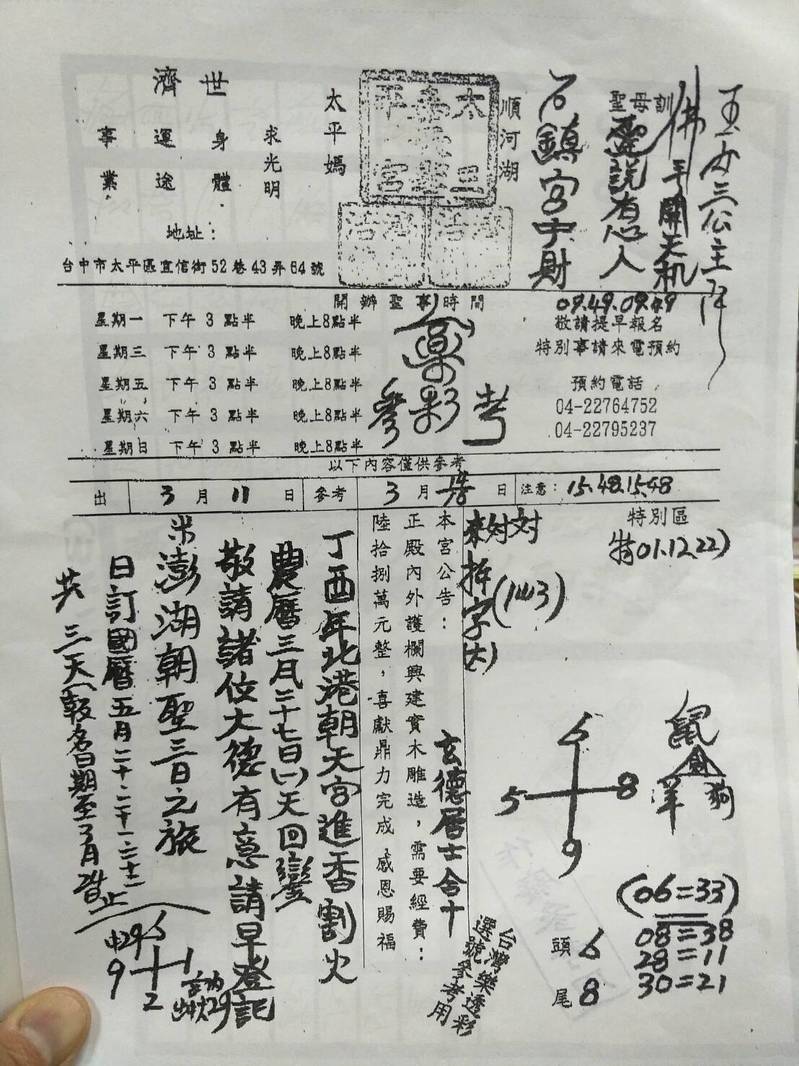 玉女三公主降
佛手開天机
聖母訓
靈説有心人
石鎮宮中財
順河湖
太平媽
求光明
世 身體
運途
濟 事業
地址：
台中市太平區宜信街52巷43弄64號
開辦聖事時間
星期一 下午3點半 晚上8點半
星期三 下午3點半 晚上8點半
星期五 下午3點半 晚上8點半
星期六 下午3點半 晚上8點半
星期日 下午3點半 晚上8點半
參彩考
09.49.09.49
敬請提早報名
特別事請來電預約
預約電話
04-22764752
04-22795237
以下內容僅供參考
出 3月11日 參考 3月 日 注意：15.48.15.48
特別區
特01.12.22)
鼠
羊 狗
6
5 8
9
(06=33)
08=38
28=11
30=21
頭 6
尾 8
台灣樂透彩
選號參考用
字
(1443)
本宮公告：
正殿內外護欄興建實木雕造，需要經費：
陸拾捌萬元整，喜獻鼎力完成 感恩賜福
玄德居士合十
丁酉年北港朝天宮進香割火
農曆三月二十七日(一)天回鑾
敬請諸位大德有意請早登記
澎湖朝聖三日之旅
日訂國曆五月二十.二十一.二十二
共三天(報名日期至 月 止
9 1
2